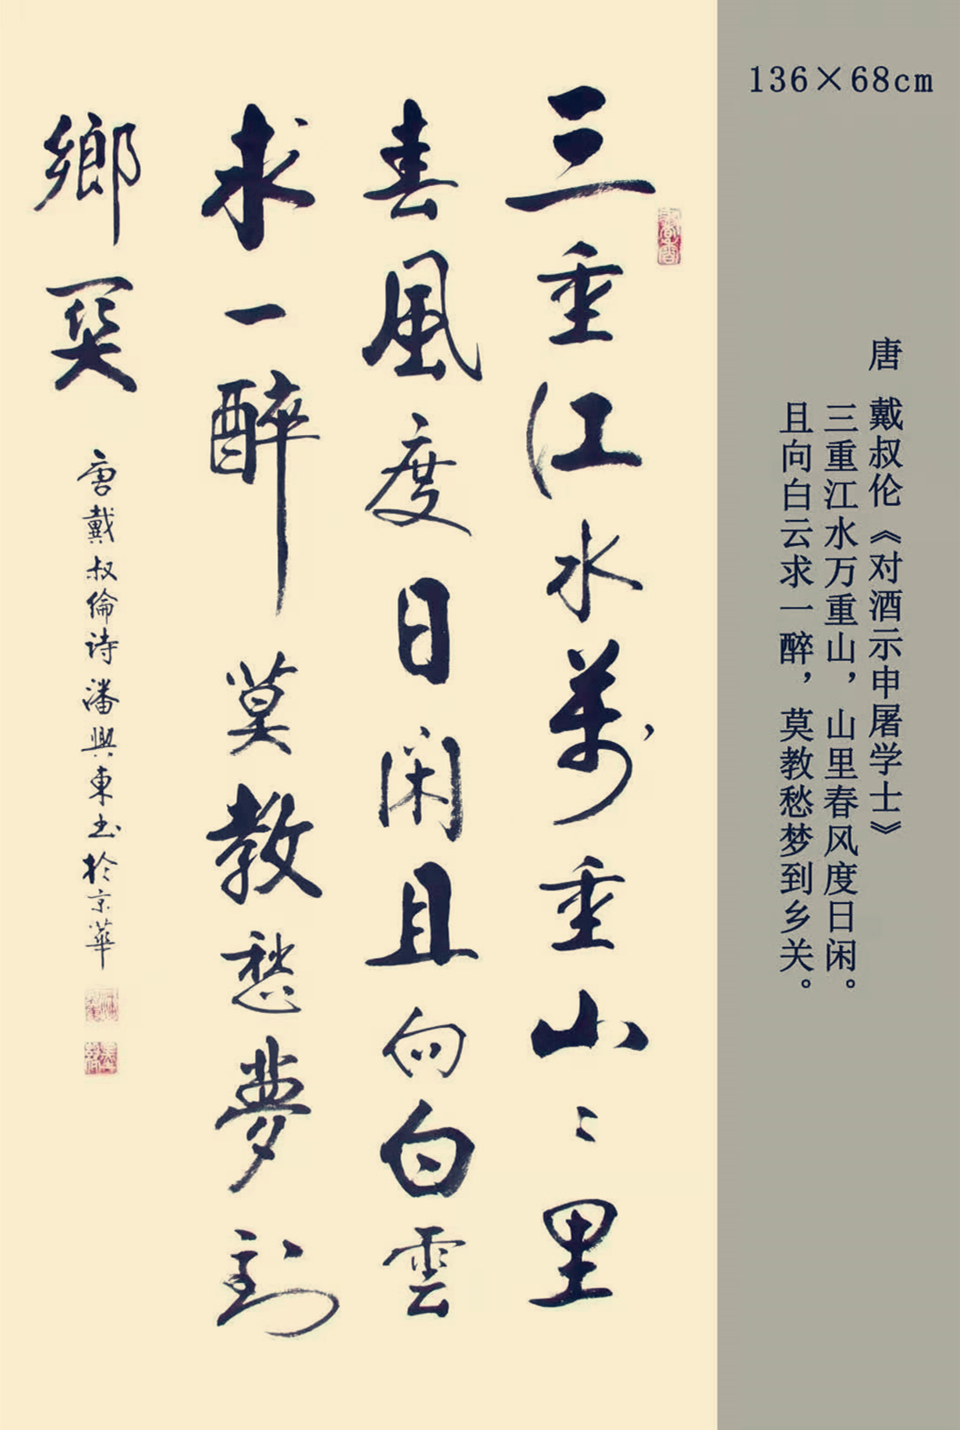 136×68cm
唐 戴叔伦《对酒示申屠学士》
三重江水万重山，山里春风度日闲。
且向白云求一醉，莫教愁梦到乡关。
三重江水萬重山〻里
春風度日闲且向白雲
求一醉莫教愁夢到
鄉関
唐戴叔倫诗潘興東书於京華